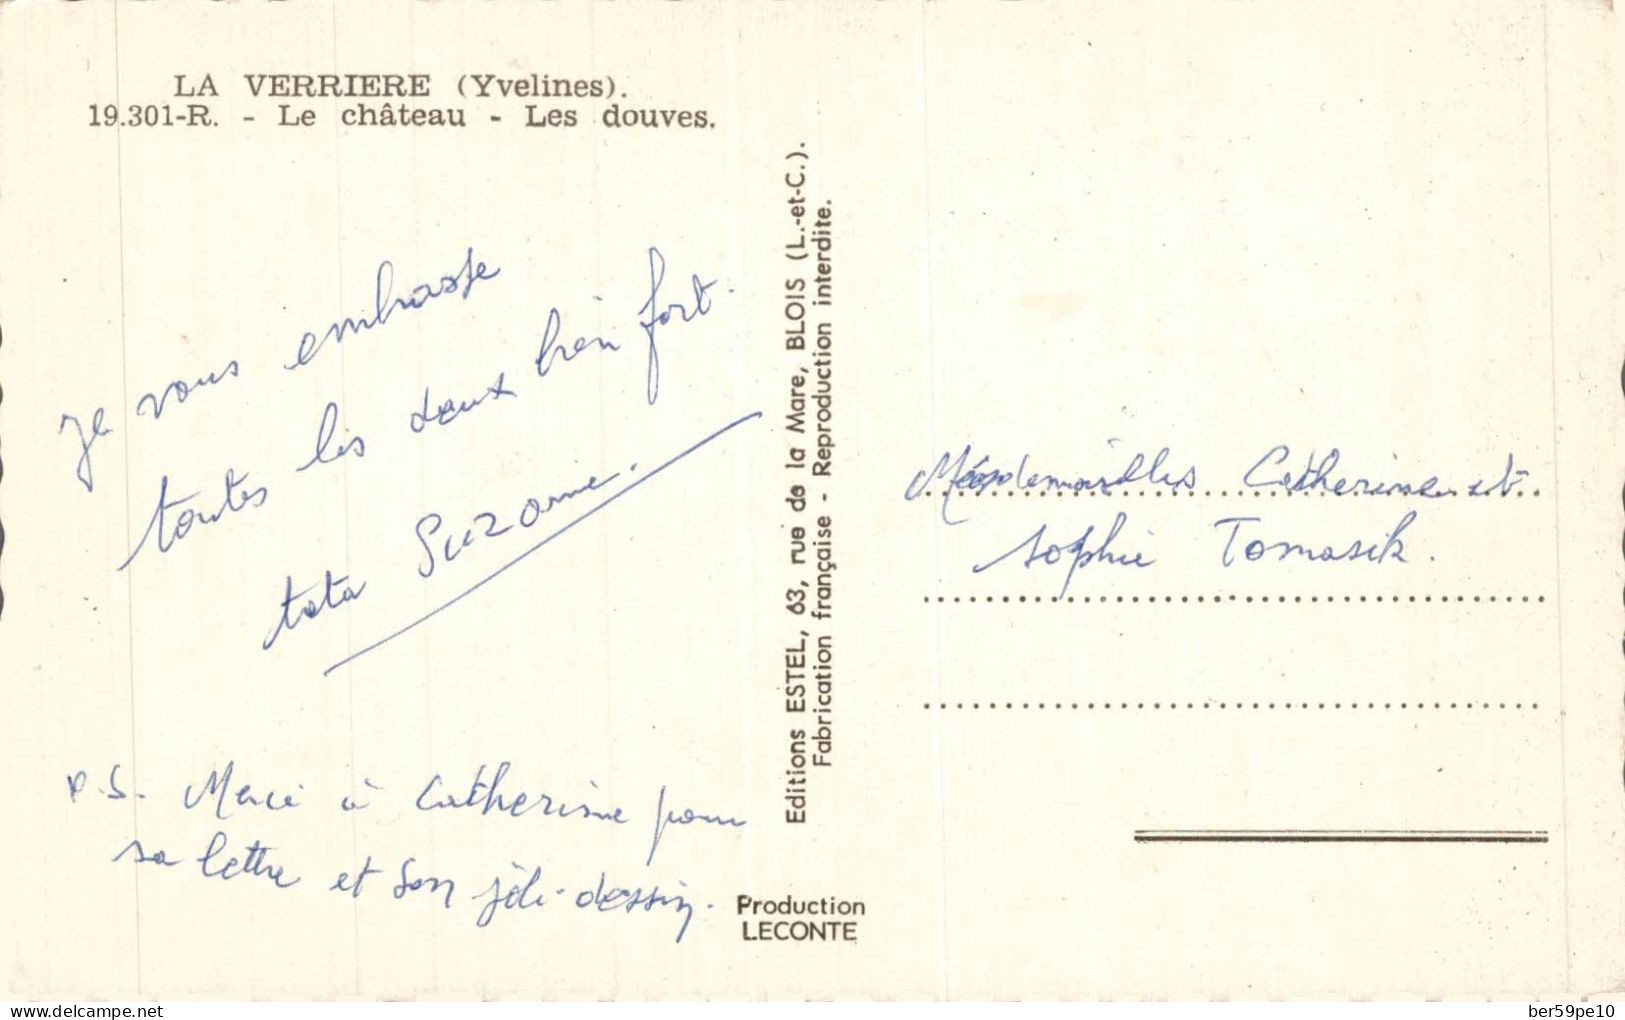 LA VERRIERE (Yvelines).
19.301-R. - Le château - Les douves.
Je vous embrasse
toutes les deux bien fort.
tata Suzanne.
P.S. Merci à Catherine pour
sa lettre et son joli dessin.
Editions ESTEL, 63, rue de la Mare, BLOIS (L.-et-C.).
Fabrication française - Reproduction interdite.
Production
LECONTE
Mesdemoiselles Catherine et
Sophie Tomasik.
delcampe.net
ber59pe10